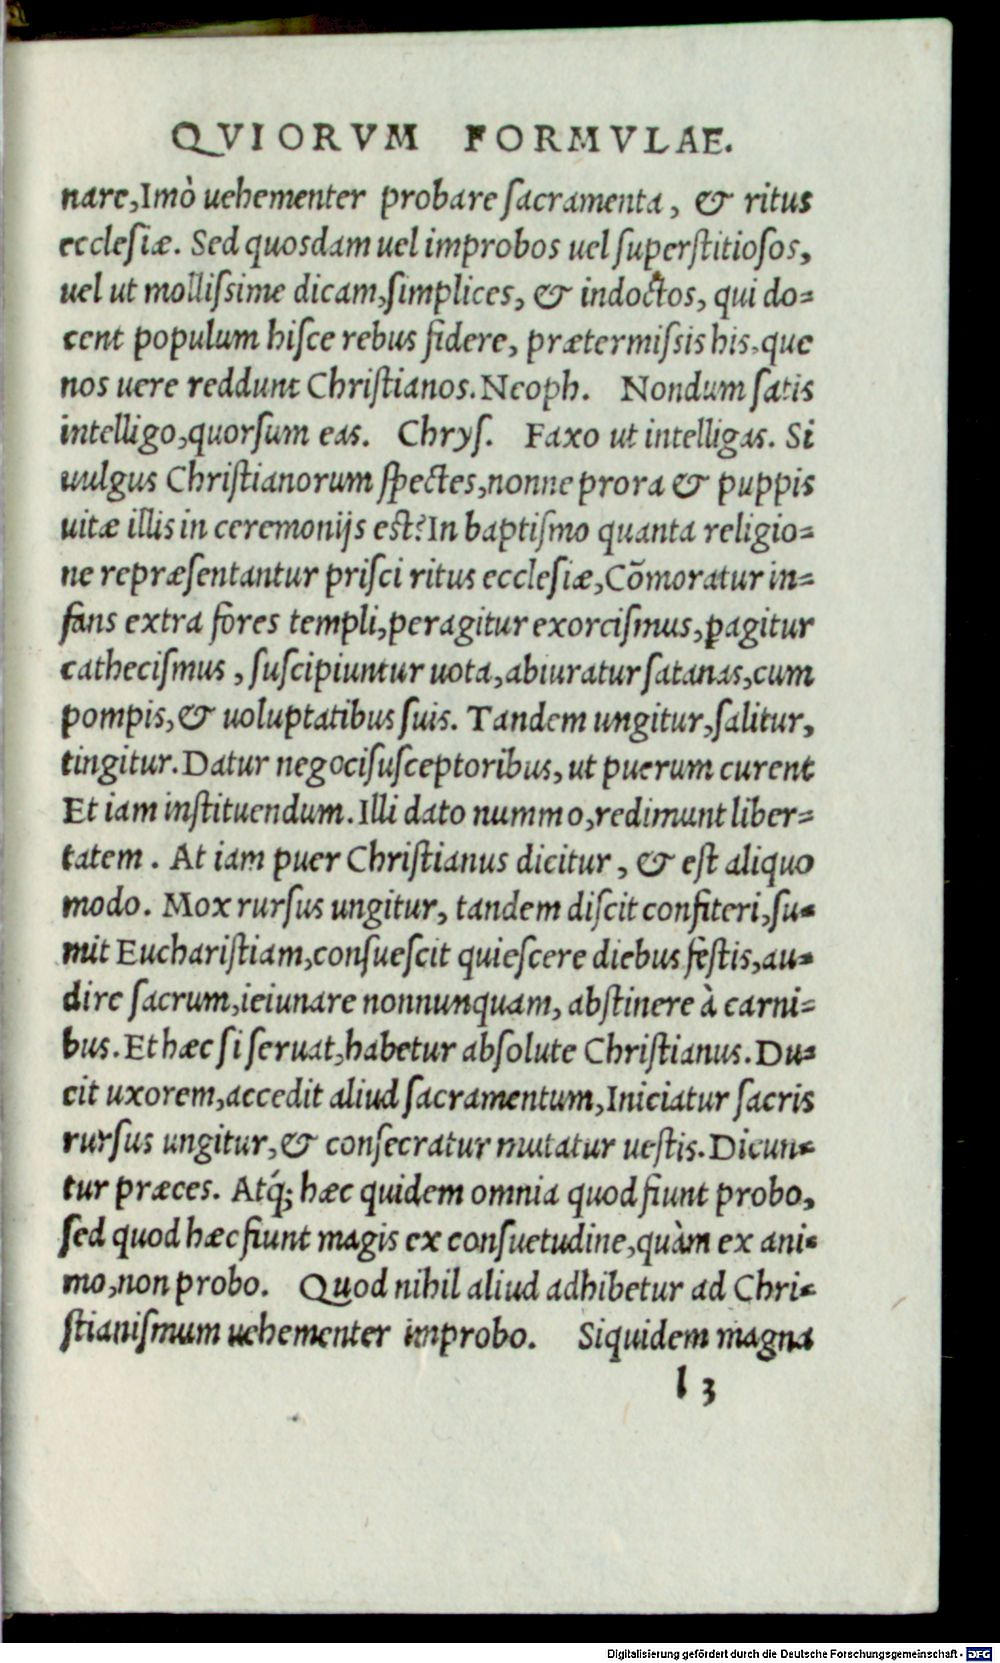 QVIORVM FORMVLAE.
nare,Imò uehementer probare ſacramenta, & ritus
eccleſiæ. Sed quosdam uel improbos uel ſuperſtitioſos,
uel ut molliſsime dicam,ſimplices, & indoctos, qui do=
cent populum hiſce rebus fidere, prætermiſsis his,que
nos uere reddunt Chriſtianos.Neoph. Nondum ſatis
intelligo,quorſum eas. Chryſ. Faxo ut intelligas. Si
uulgus Chriſtianorum ſpectes,nonne prora & puppis
uitæ illis in ceremonijs eſt?In baptiſmo quanta religio=
ne repræſentantur priſci ritus eccleſiæ,Cõmoratur in=
fans extra fores templi,peragitur exorciſmus,ꝑagitur
catheciſmus, ſuſcipiuntur uota,abiuratur ſatanas,cum
pompis,& uoluptatibus ſuis. Tandem ungitur,ſalitur,
tingitur.Datur negociſuſceptoribus,ut puerum curent
Et iam inſtituendum.Illi dato nummo,redimunt liber=
tatem. At iam puer Chriſtianus dicitur, & eſt aliquo
modo. Mox rurſus ungitur, tandem diſcit confiteri,ſu=
mit Euchariſtiam,conſueſcit quieſcere diebus feſtis,au=
dire ſacrum,ieiunare nonnunquam, abſtinere à carni=
bus.Et hæc ſi ſeruat,habetur abſolute Chriſtianus.Du=
cit uxorem,accedit aliud ſacramentum,Iniciatur ſacris
rurſus ungitur,& conſecratur mutatur ueſtis.Dicun=
tur præces. Atq́; hæc quidem omnia quod fiunt probo,
ſed quod hæc fiunt magis ex conſuetudine,quàm ex ani=
mo,non probo. Quod nihil aliud adhibetur ad Chri=
ſtianiſmum uehementer improbo. Siquidem magna
l 3
Digitalisierung gefördert durch die Deutsche Forschungsgemeinschaft - DFG